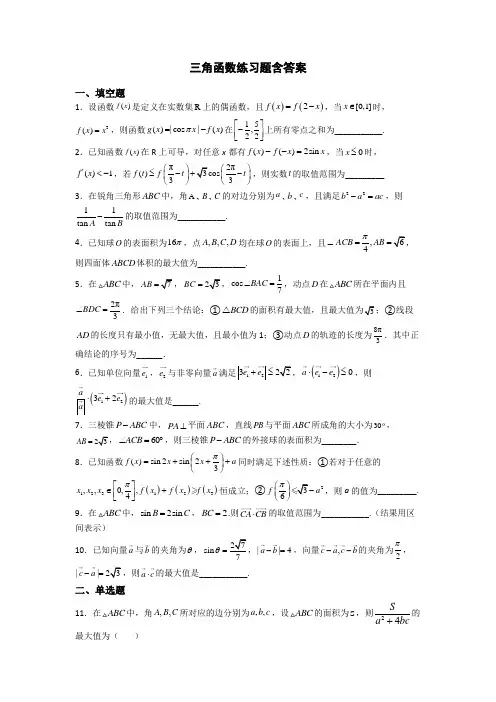 三角函数练习题含答案
一、填空题
1．设函数 f(x) 是定义在实数集 R 上的偶函数，且 f(x)=f(2−x)，当 x∈[0,1] 时，
f(x)=x³，则函数 g(x)=|cosπx|−f(x) 在 [−1/2,5/2] 上所有零点之和为___________.
2．已知函数 f(x) 在 R 上可导，对任意 x 都有 f(x)−f(−x)=2sin x，当 x≤0 时，
f′(x)<−1，若 f(t)≤f(π/3−t)+√3cos(2π/3−t)，则实数 t 的取值范围为_________
3．在锐角三角形 ABC 中，角 A、B、C 的对边分别为 a、b、c，且满足 b²−a²=ac，则
1/tan A − 1/tan B 的取值范围为___________.
4．已知球 O 的表面积为 16π，点 A,B,C,D 均在球 O 的表面上，且∠ACB=π/4, AB=√6，
则四面体 ABCD 体积的最大值为___________.
5．在△ABC 中，AB=√7，BC=2√3，cos∠BAC=1/7，动点 D 在△ABC 所在平面内且
∠BDC=2π/3．给出下列三个结论：①△BCD 的面积有最大值，且最大值为√3；②线段
AD 的长度只有最小值，无最大值，且最小值为 1；③动点 D 的轨迹的长度为 8π/3．其中正
确结论的序号为______．
6．已知单位向量 e₁，e₂ 与非零向量 a 满足 |3e₁+e₂|≤2√2，a·(e₁−e₂)≤0，则
a/|a|·(3e₁+2e₂) 的最大值是______.
7．三棱锥 P−ABC 中，PA⊥平面 ABC，直线 PB 与平面 ABC 所成角的大小为 30°，
AB=2√3，∠ACB=60°，则三棱锥 P−ABC 的外接球的表面积为________．
8．已知函数 f(x)=sin2x+sin(2x+π/3)+a 同时满足下述性质：①若对于任意的
x₁,x₂,x₃∈[0,π/4], f(x₁)+f(x₂)⩾f(x₃) 恒成立；②f(π/6)⩽√3−a²，则 a 的值为_________.
9．在△ABC 中，sin B=2sin C，BC=2.则 CA·CB 的取值范围为___________.（结果用区
间表示）
10．已知向量 a 与 b 的夹角为 θ，sinθ=2√7/7，|a−b|=4，向量 c−a,c−b 的夹角为 π/2，
|c−a|=2√3，则 a·c 的最大值是___________.
二、单选题
11．在△ABC 中，角 A,B,C 所对应的边分别为 a,b,c，设△ABC 的面积为 S，则 S/(a²+4bc) 的
最大值为（ ）